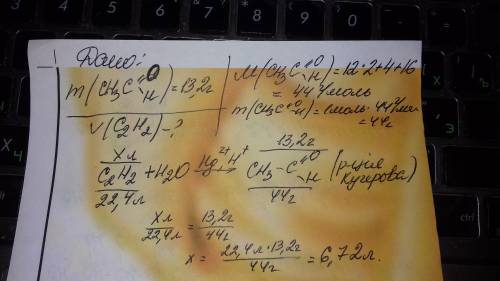 Дано:
m(CH3C=O H)=13,2г
V(C2H2)-?
M(CH3C=O H)=12·2+4+16
= 44 г/моль
m(CH3C=O H)=1моль·44г/моль
=44г
xл 13,2г
C2H2 + H2O Hg2+, H+ → CH3-C=O H (р-ція
22,4л 44г Кучерова)
xл / 22,4л = 13,2г / 44г
x = 22,4л·13,2г / 44г = 6,72л.